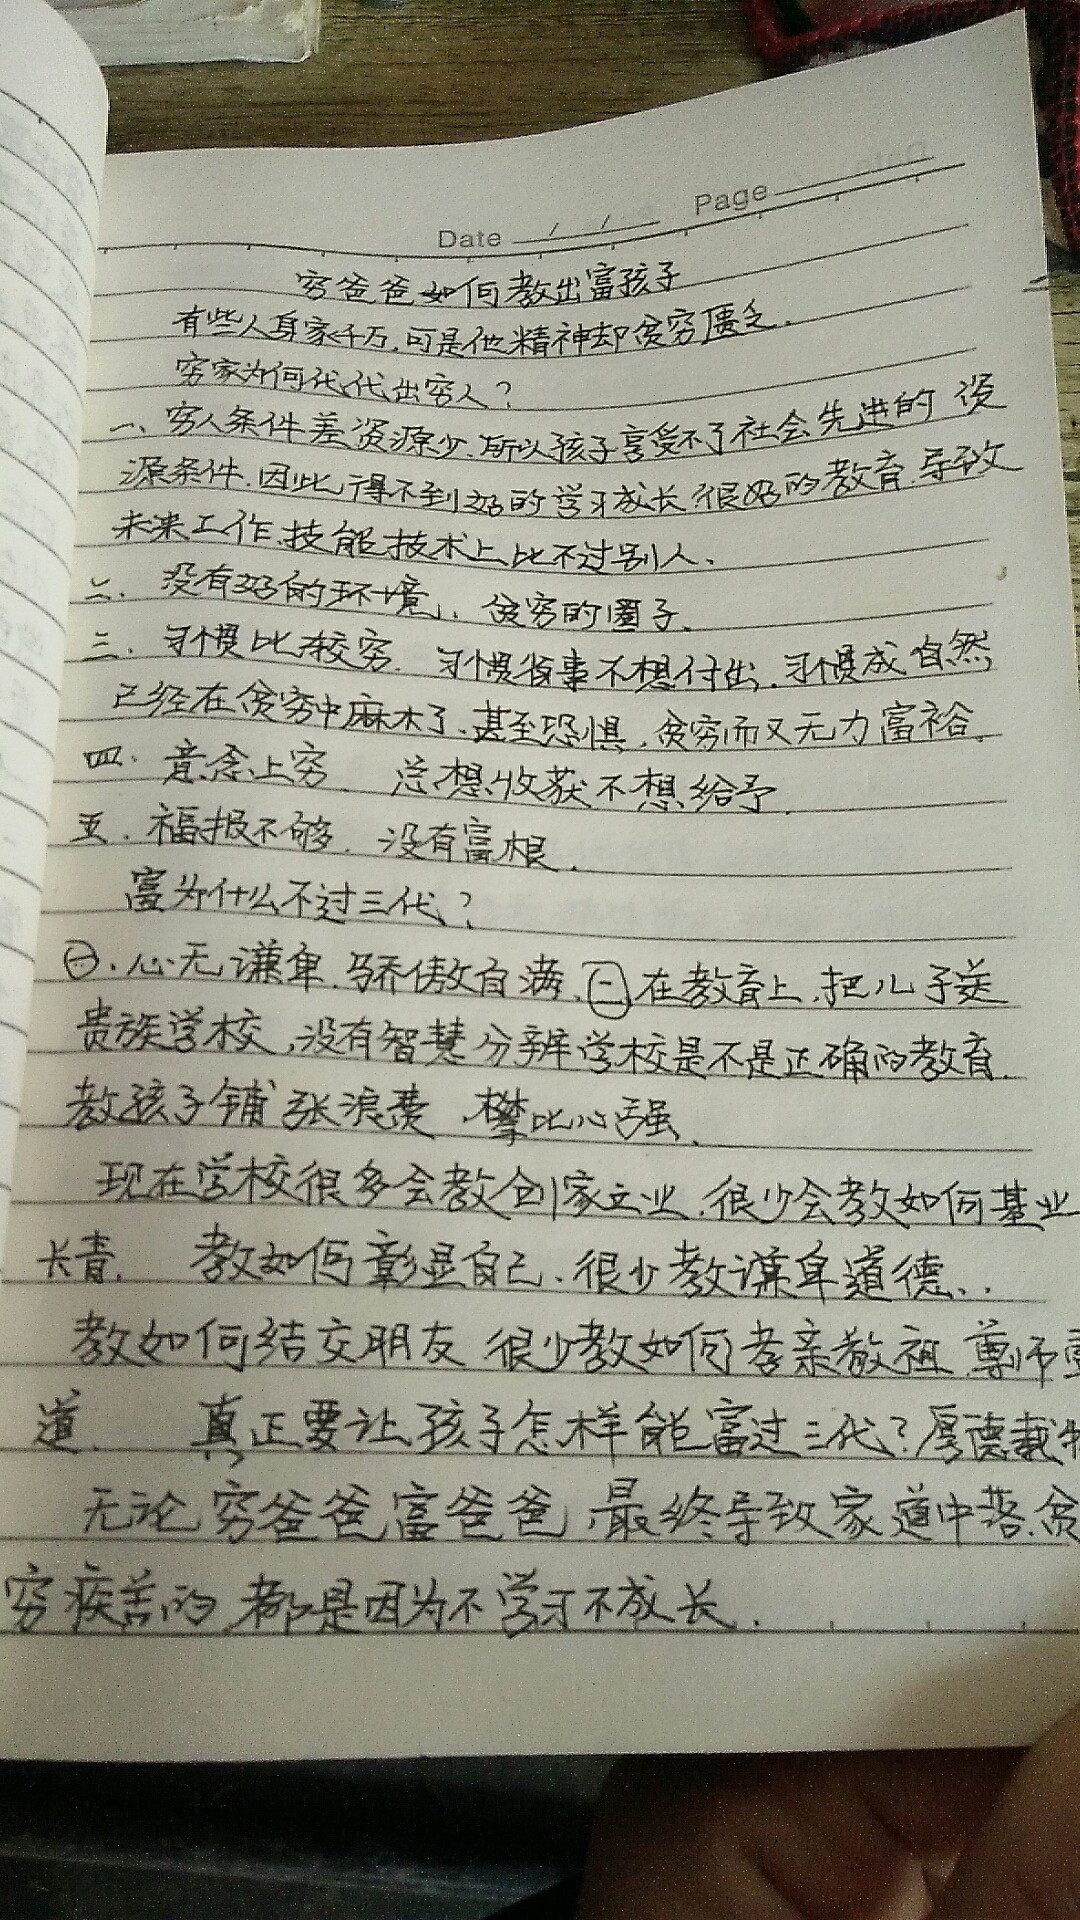 Date / / Page
穷爸爸如何教出富孩子
有些人身家千万,可是他精神却贫穷匮乏.
穷家为何代代出穷人?
一、穷人条件差资源少.所以孩子享受不了社会先进的资
源条件.因此得不到好的学习成长.很好的教育.导致
未来工作.技能技术上比不过别人.
二、没有好的环境、贫穷的圈子.
三.习惯比较穷.习惯省事不想付出.习惯成自然
已经在贫穷中麻木了.甚至恐惧.贫穷而又无力富裕.
四.意念上穷 总想收获不想给予.
五.福报不够.没有富根.
富为什么不过三代?
㊀.心无谦卑.骄傲自满.㊁在教育上.把儿子送
贵族学校,没有智慧分辨学校是不是正确的教育.
教孩子铺张浪费.攀比心强.
现在学校很多会教创家立业.很少会教如何基业
长青. 教如何彰显自己.很少教谦卑道德..
教如何结交朋友 很少教如何孝亲敬祖 尊师重
道. 真正要让孩子怎样能富过三代?厚德载物
无论穷爸爸富爸爸,最终导致家道中落.贫
穷疾苦的都是因为不学习不成长.